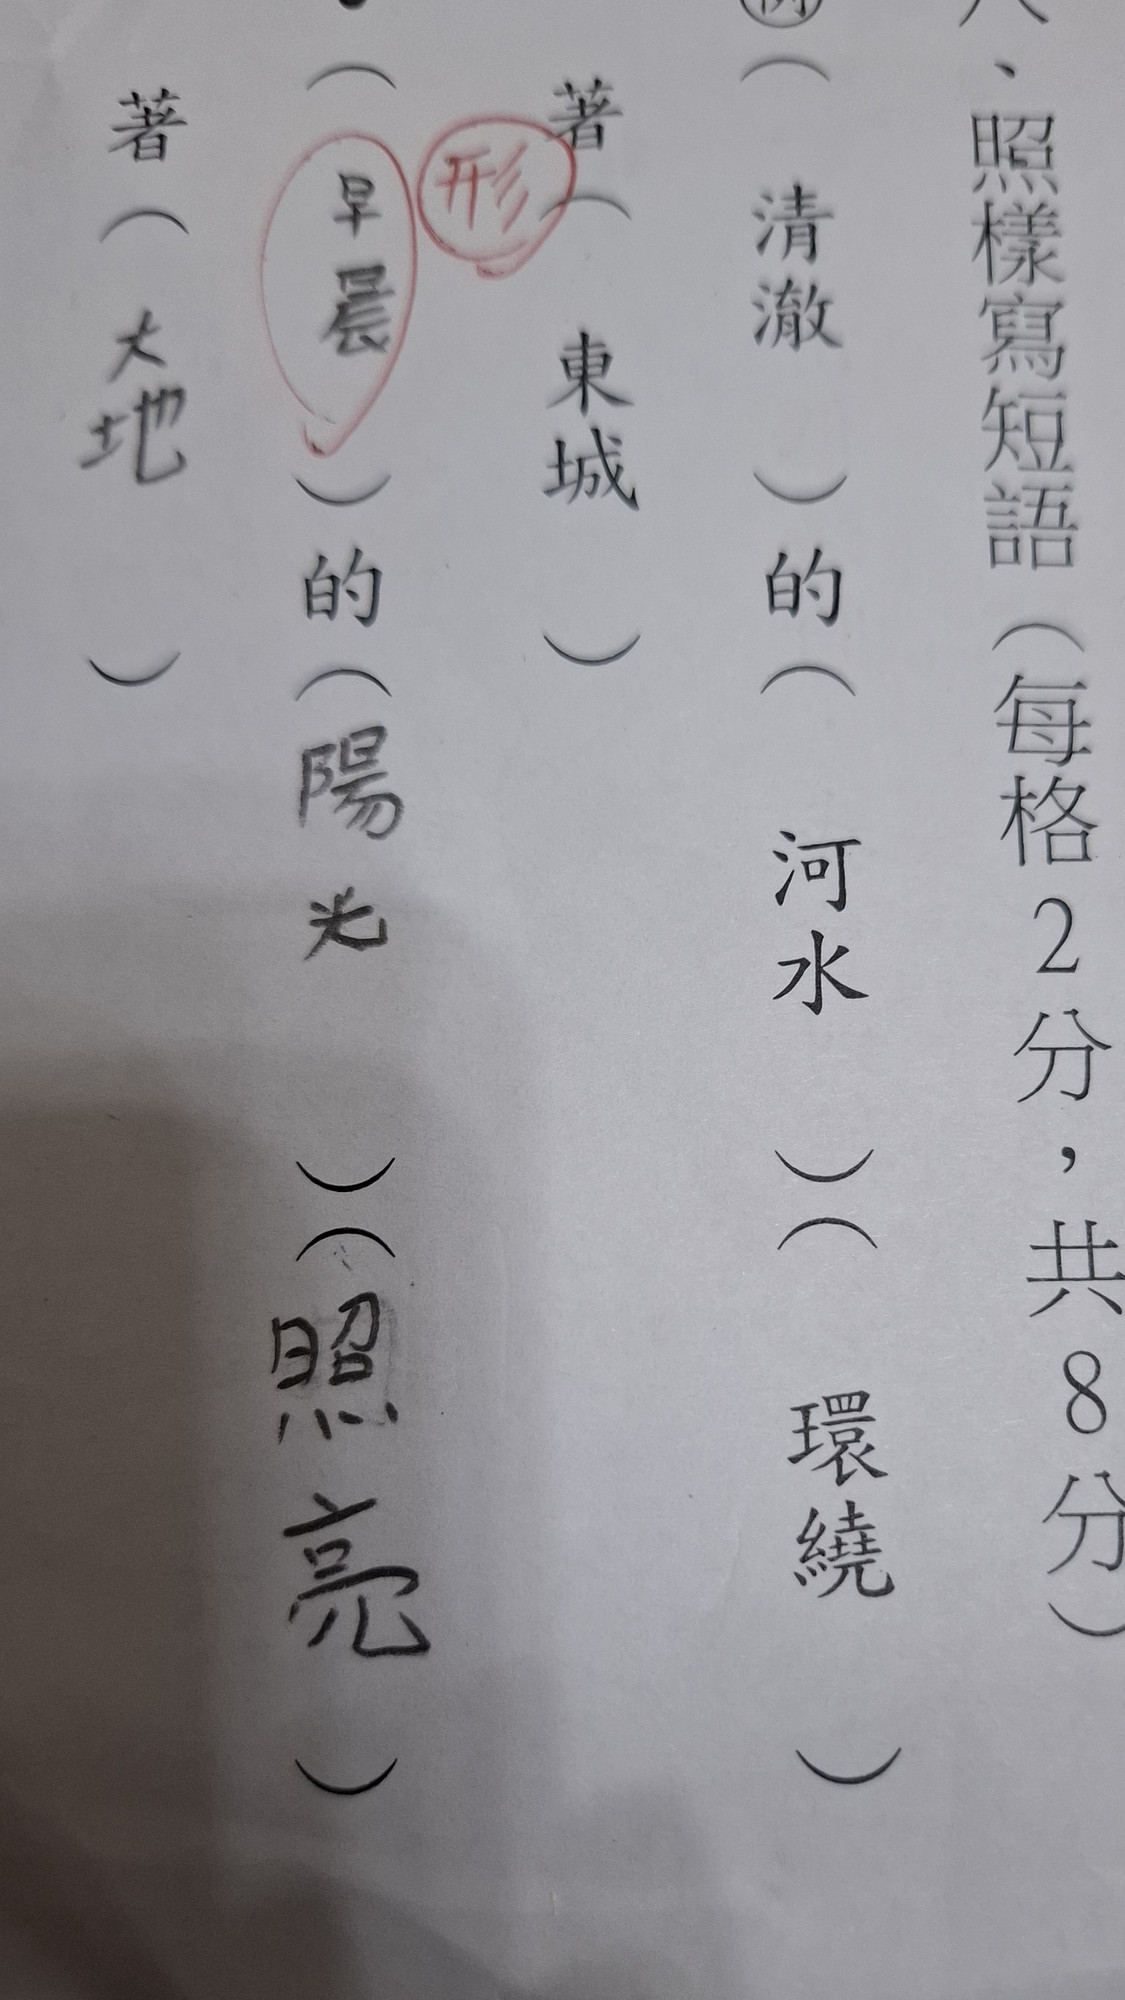 、照樣寫短語（每格2分，共8分）
例（清澈）的（河水）（環繞）
著（東城）
形
（早晨）的（陽光）（照亮）
著（大地）